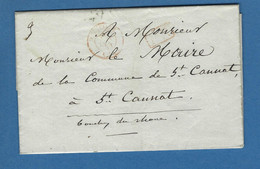 A Monsieur
Monsieur le Maire
de la Commune de St. Cannat,
à St. Cannat.
Bouches du rhone